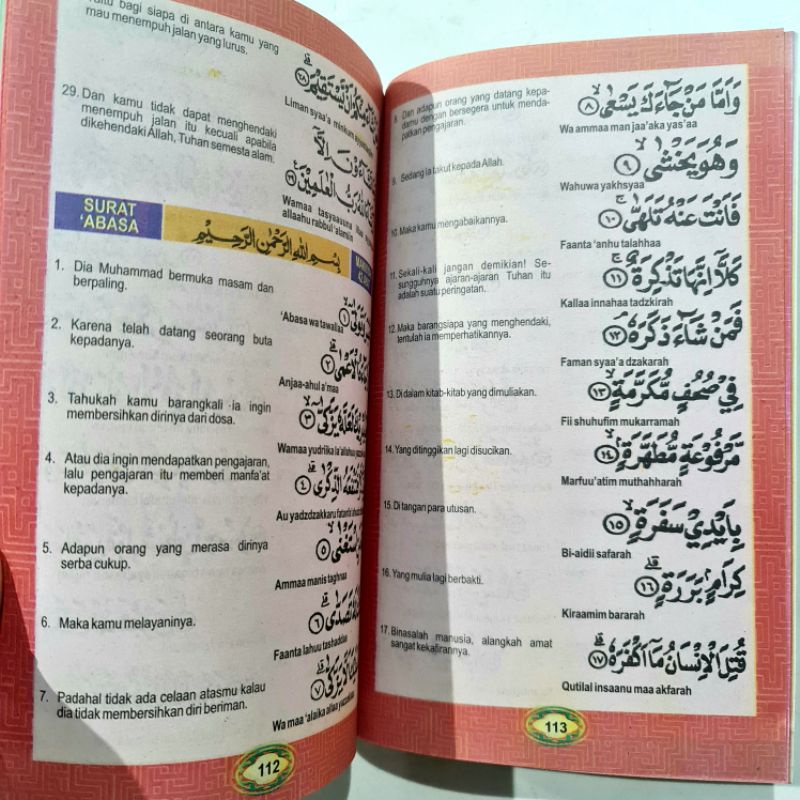 bagi siapa di antara kamu yang
mau menempuh jalan yang lurus.
Liman syaa'a minkum
29. Dan kamu tidak dapat menghendaki
menempuh jalan itu kecuali apabila
dikehendaki Allah, Tuhan semesta alam.
Wamaa tasyaauuna
allaahu rabbul 'alamiin
SURAT
'ABASA
بِسْمِ اللهِ الرَّحْمٰنِ الرَّحِيْمِ
1. Dia Muhammad bermuka masam dan
berpaling.
'Abasa wa tawallaa
2. Karena telah datang seorang buta
kepadanya.
Anjaa-ahul a'maa
3. Tahukah kamu barangkali ia ingin
membersihkan dirinya dari dosa.
Wamaa yudriika la'allahuu
4. Atau dia ingin mendapatkan pengajaran,
lalu pengajaran itu memberi manfa'at
kepadanya.
Au yadzdzakkaru
5. Adapun orang yang merasa dirinya
serba cukup.
Ammaa manis taghnaa
6. Maka kamu melayaninya.
Faanta lahuu tashaddaa
7. Padahal tidak ada celaan atasmu kalau
dia tidak membersihkan diri beriman.
Wa maa 'alaika allaa
112
8. Dan adapun orang yang datang kepa-
damu dengan bersegera untuk menda-
patkan pengajaran.
وَاَمَّا مَنْ جَآءَكَ يَسْعٰى ٨
Wa ammaa man jaa'aka yas'aa
9. Sedang ia takut kepada Allah.
وَهُوَ يَخْشٰى ٩
Wahuwa yakhsyaa
10. Maka kamu mengabaikannya.
فَاَنْتَ عَنْهُ تَلَهّٰى ١٠
Faanta 'anhu talahhaa
11. Sekali-kali jangan demikian! Se-
sungguhnya ajaran-ajaran Tuhan itu
adalah suatu peringatan.
كَلَّآ اِنَّهَا تَذْكِرَةٌ ١١
Kallaa innahaa tadzkirah
12. Maka barangsiapa yang menghendaki,
tentulah ia memperhatikannya.
فَمَنْ شَآءَ ذَكَرَهٗ ١٢
Faman syaa'a dzakarah
13. Di dalam kitab-kitab yang dimuliakan.
فِيْ صُحُفٍ مُّكَرَّمَةٍ ١٣
Fii shuhufim mukarramah
14. Yang ditinggikan lagi disucikan.
مَّرْفُوْعَةٍ مُّطَهَّرَةٍ ١٤
Marfuu'atim muthahharah
15. Di tangan para utusan.
بِاَيْدِيْ سَفَرَةٍ ١٥
Bi-aidii safarah
16. Yang mulia lagi berbakti.
كِرَامٍۢ بَرَرَةٍ ١٦
Kiraamim bararah
17. Binasalah manusia, alangkah amat
sangat kekafirannya.
قُتِلَ الْاِنْسَانُ مَآ اَكْفَرَهٗ ١٧
Qutilal insaanu maa akfarah
113